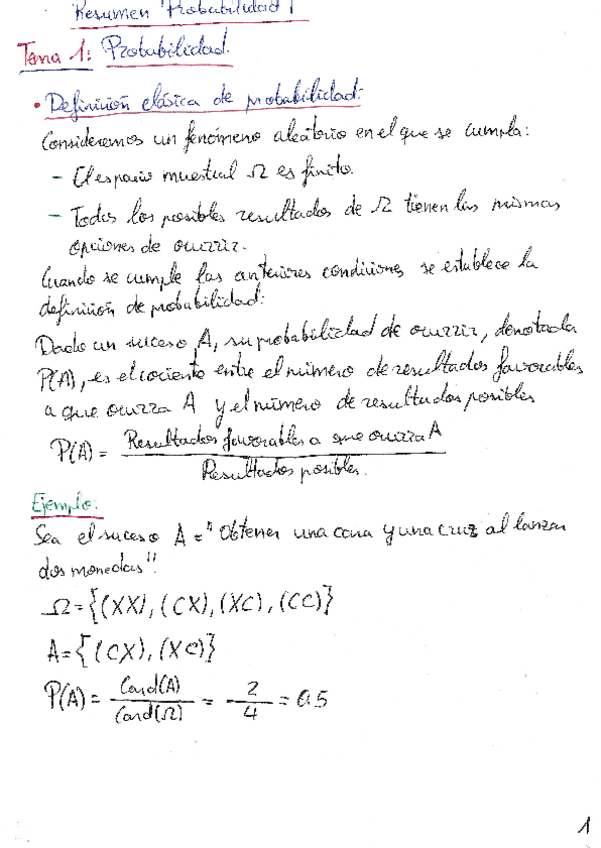 Resumen Probabilidad I
Tema 1: Probabilidad.
• Definición clásica de probabilidad:
Consideremos un fenómeno aleatorio en el que se cumpla:
- El espacio muestral Ω es finito.
- Todos los posibles resultados de Ω tienen las mismas
opciones de ocurrir.
Cuando se cumple las anteriores condiciones se establece la
definición de probabilidad:
Dado un suceso A, su probabilidad de ocurrir, denotada
P(A), es el cociente entre el número de resultados favorables
a que ocurra A y el número de resultados posibles
P(A) = Resultados favorables a que ocurra A / Resultados posibles.
Ejemplo:
Sea el suceso A = "Obtener una cara y una cruz al lanzar
dos monedas".
Ω = {(XX), (CX), (XC), (CC)}
A = {(CX), (XC)}
P(A) = Card(A) / Card(Ω) = 2 / 4 = 0.5
1